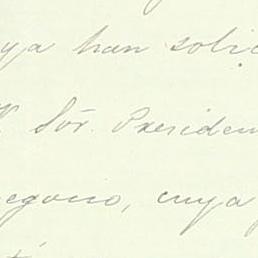 ya han solic
Sór. Presiden
egocio, cuya